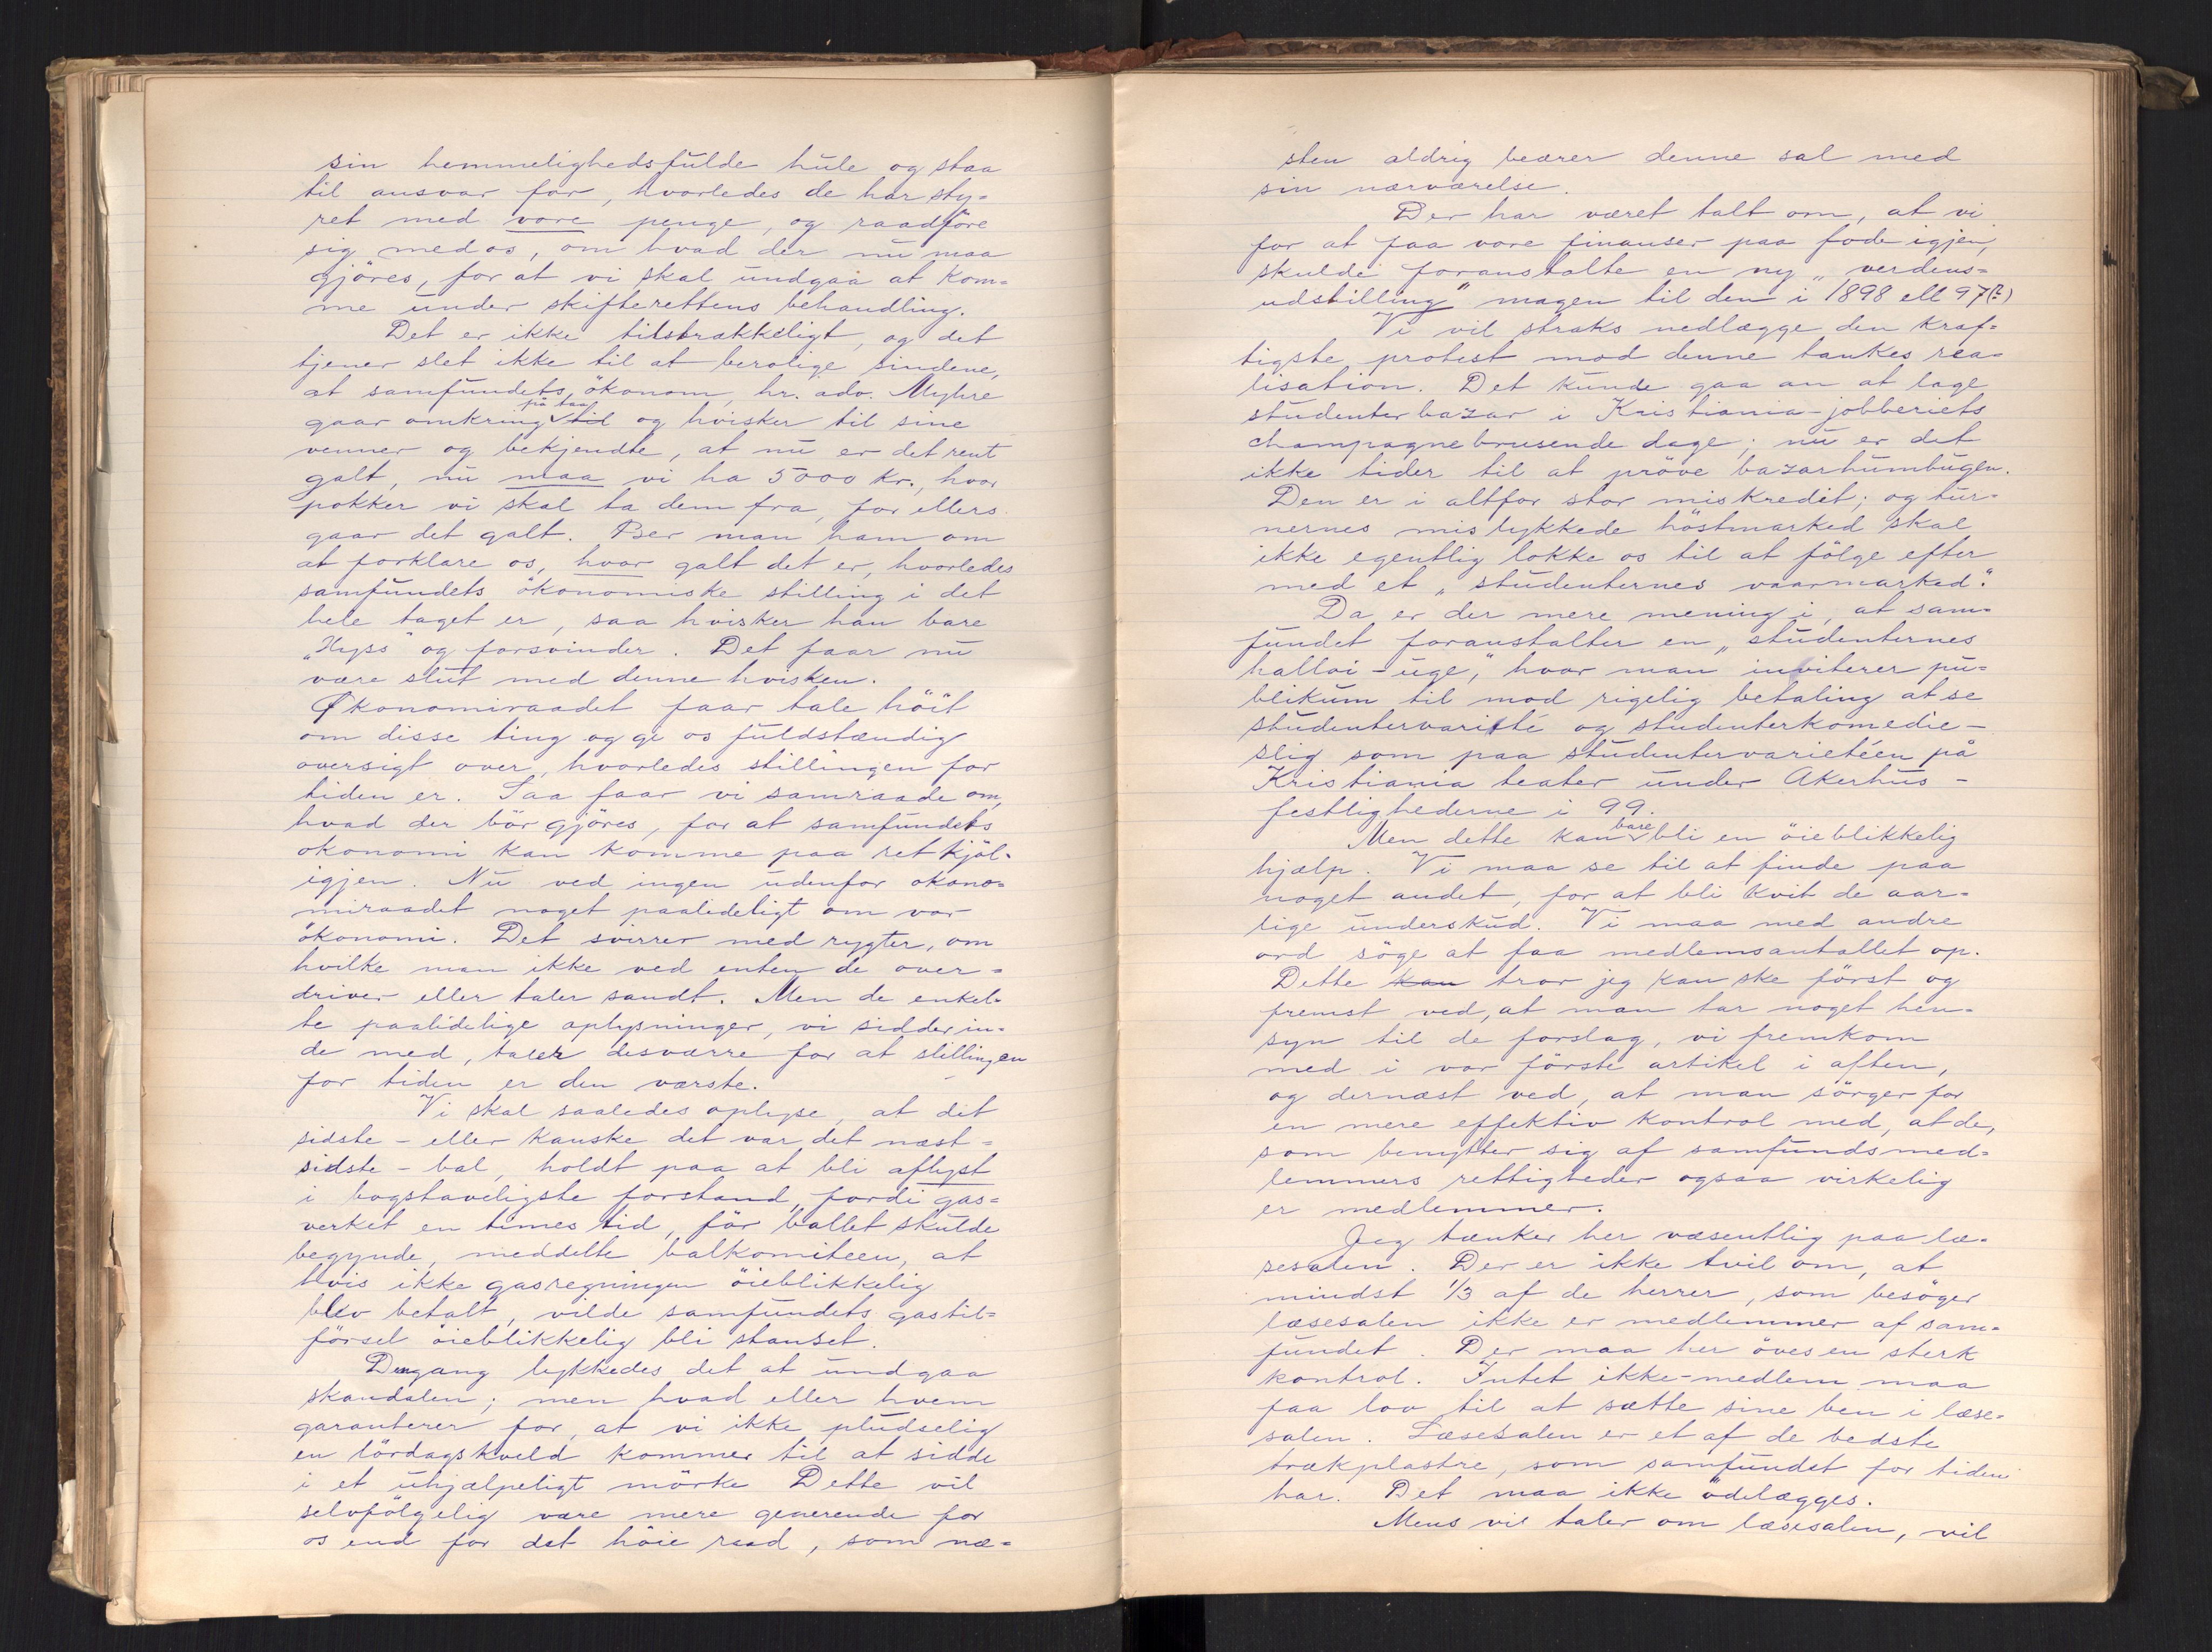 sin hemmelighedsfulde hule og staa
til ansvar for, hvorledes de har sty=
ret med vore penge, og raadföre
sig med os, om hvad der nu maa
gjöres, for at vi skal undgaa at kom=
me under skifterettens behandling.
Det er ikke tilstrækkeligt, og det
tjener slet ikke til at berolige sindene,
at samfundets ökonom, hr. adv. Myhre
gaar omkring på taa til og hvisker til sine
venner og bekjendte, at nu er det rent
galt, nu maa vi ha 5000 kr., hvor
pokker vi skal ta dem fra, for ellers
gaar det galt. Ber man ham om
at forklare os, hvor galt det er, hvorledes
samfundets ökonomiske stilling i det
hele taget er, saa hvisker han bare
„Hyss" og forsvinder. Det faar nu
være slut med denne hvisken.
Økonomiraadet faar tale höit
om disse ting og gi os fuldstændig
oversigt over, hvorledes stillingen for
tiden er. Saa faar vi samraade om,
hvad der bör gjöres, for at samfundets
økonomi kan komme paa ret kjöl
igjen. Nu ved ingen udenfor økono=
miraadet noget paalideligt om vor
ökonomi. Det svirrer med rygter, om
hvilke man ikke ved enten de over=
driver eller taler sandt. Men de enkel=
te paalidelige oplysninger, vi sidder in=
de med, taler desværre for at stillingen
for tiden er den værste.
Vi skal saaledes oplyse, at det
sidste - eller kanske det var det næst=
sidste - bal, holdt paa at bli aflyst
i bogstaveligste forstand, fordi gas=
verket en times tid, för ballet skulde
begynde, meddelte balkomiteen, at
hvis ikke gasregningen öieblikkelig
blev betalt, vilde samfundets gastil=
försel öieblikkelig bli stanset.
Dengang lykkedes det at undgaa
skandalen; men hvad eller hvem
garanterer for, at vi ikke pludselig
en lördagskveld kommer til at sidde
i et uhjælpeligt mörke Dette vil
selvfölgelig være mere generende for
os end for det höie raad, som næ=
sten aldrig beærer denne sal med
sin nærværelse.
Der har været talt om, at vi
for at faa vore finanser paa fode igjen,
skulde foranstalte en ny „verdens=
udstilling" magen til den i 1898 ell 97(?)
Vi vil straks nedlægge den kraf=
tigste protest mod denne tankes rea=
lisation. Det kunde gaa an at lage
studenterbazar i Kristiania-jobberiets
champagnebrusende dage; nu er det
ikke tider til at pröve bazarhumbugen.
Den er i altfor stor miskredit; og tur=
nernes mislykkede höstmarked skal
ikke egentlig lokke os til at fölge efter
med et „studenternes vaarmarked."
Da er der mere mening i, at sam=
fundet foranstalter en „studenternes
halloi-uge," hvor man inviterer pu=
blikum til mod rigelig betaling at se
studentervarité og studenterkomedie -
slig som paa studentervarietéen på
Kristiania teater under Akerhus -
festlighederne i 99.
Men dette kan bare bli en öieblikkelig
hjælp. Vi maa se til at finde paa
noget andet, for at bli kvit de aar=
lige underskud. Vi maa med andre
ord söge at faa medlemsantallet op.
Dette kan tror jeg kan ske först og
fremst ved, at man tar noget hen=
syn til de forslag, vi fremkom
med i vor förste artikel i aften,
og dernæst ved, at man sörger for
en mere effektiv kontrol med, at de,
som benytter sig af samfundsmed=
lemmers rettigheder ogsaa virkelig
er medlemmer.
Jeg tænker her væsentlig paa læ=
sesalen. Der er ikke tvil om, at
mindst 1/3 af de herrer, som besöger
læsesalen ikke er medlemmer af sam=
fundet. Der maa her öves en sterk
kontrol. Intet ikke-medlem maa
faa lov til at sætte sine ben i læse=
salen. Læsesalen er et af de bedste
trækplastre, som samfundet for tiden
har. Det maa ikke ödelægges.
Mens vi taler om læsesalen, vil